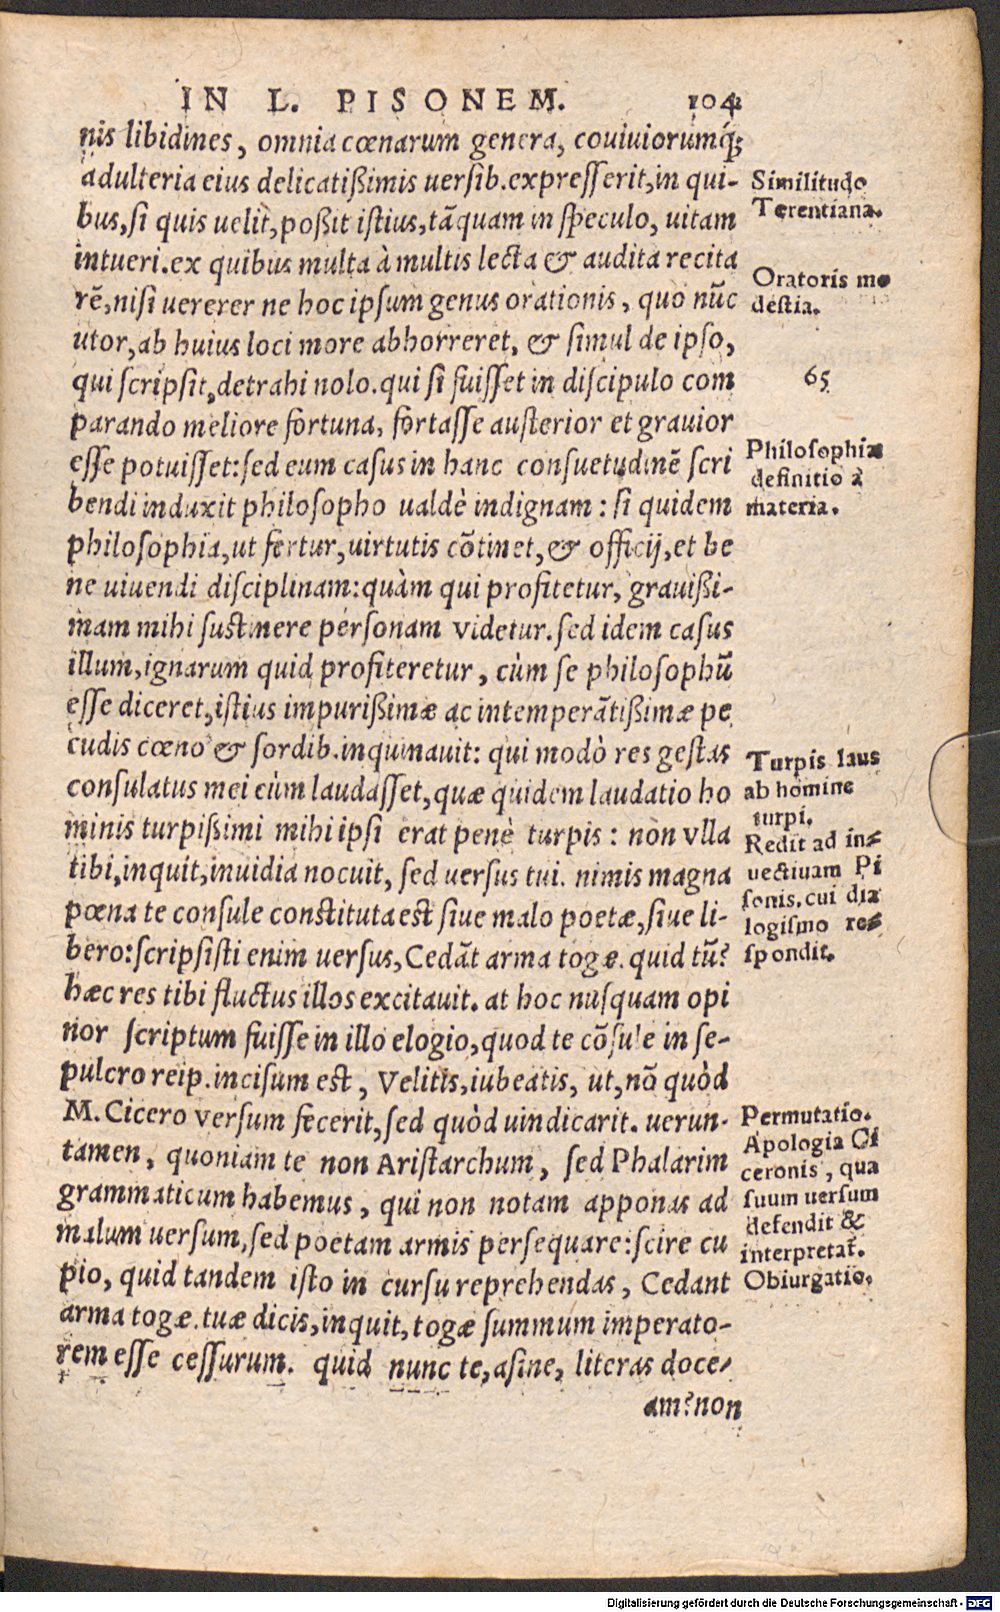 IN L. PISONEM. 104
nis libidines, omnia cœnarum genera, cōuiuiorumq́;
adulteria eius delicatißimis uersib. expresserit, in qui-
bus, si quis uelit, poßit istius, tāquam in speculo, uitam
intueri. ex quibus multa à multis lecta & audita recita
rē, nisi uererer ne hoc ipsum genus orationis, quo nūc
utor, ab huius loci more abhorreret, & simul de ipso,
qui scripsit, detrahi nolo. qui si fuisset in discipulo com
parando meliore fortuna, fortasse austerior et grauior
esse potuisset: sed eum casus in hanc consuetudinē scri
bendi induxit philosopho ualdè indignam: si quidem
philosophia, ut fertur, uirtutis cōtinet, & officij, et be
ne uiuendi disciplinam: quàm qui profitetur, grauißi-
mam mihi sustinere personam videtur. sed idem casus
illum, ignarum quid profiteretur, cùm se philosophū
esse diceret, istius impurißimæ ac intemperātißimæ pe
cudis cœno & sordib. inquinauit: qui modò res gestas
consulatus mei cùm laudasset, quæ quidem laudatio ho
minis turpißimi mihi ipsi erat penè turpis: non vlla
tibi, inquit, inuidia nocuit, sed uersus tui. nimis magna
pœna te consule constituta est siue malo poetæ, siue li-
bero: scripsisti enim uersus, Cedāt arma togæ. quid tū?
hæc res tibi fluctus illos excitauit. at hoc nusquam opi
nor scriptum fuisse in illo elogio, quod te cōsule in se-
pulcro reip. incisum est, Velitis, iubeatis, ut, nō quòd
M. Cicero versum fecerit, sed quòd uindicarit. uerun-
tamen, quoniam te non Aristarchum, sed Phalarim
grammaticum habemus, qui non notam apponas ad
malum uersum, sed poetam armis persequare: scire cu
pio, quid tandem isto in cursu reprehendas, Cedant
arma togæ. tuæ dicis, inquit, togæ summum imperato-
rem esse cessurum. quid nunc te, asine, literas doce-
am? non
Similitudo
Terentiana.
Oratoris mo
destia.
65
Philosophiæ
definitio à
materia.
Turpis laus
ab homine
turpi.
Redit ad in-
uectiuam Pi
sonis. cui dia
logismo re-
spondit.
Permutatio.
Apologia Ci
ceronis, qua
suum uersum
defendit &
interpretat.
Obiurgatio.
Digitalisierung gefördert durch die Deutsche Forschungsgemeinschaft - DFG